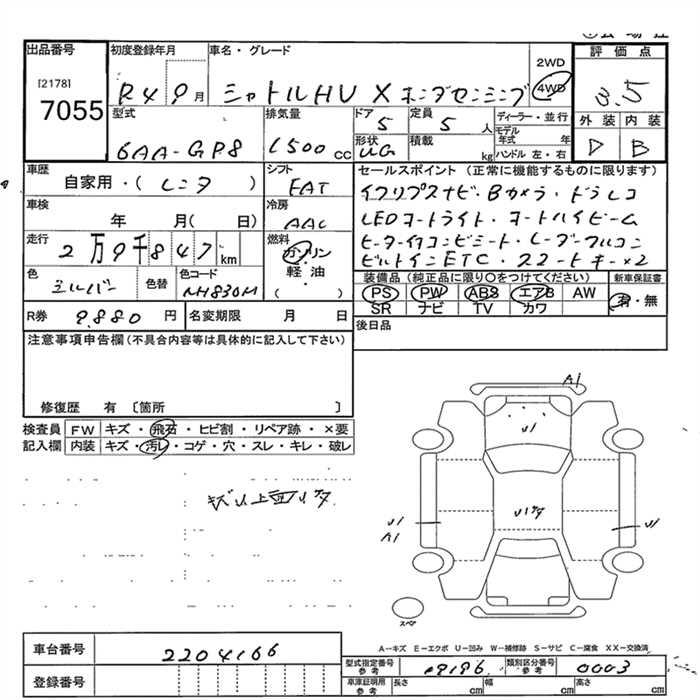 出品番号
[2178]
7055
初度登録年月
R4 9月
車名・グレード
シャトルHV X ホンダセンシング
2WD
4WD
評価点
3.5
外装 内装
D B
型式
6AA-GP8
排気量
1500 cc
ドア
5
定員
5 人
形状
UG
積載
kg
ディーラー・並行
モデル年式 年
ハンドル 左・右
車歴
自家用・(レンタ)
シフト
FAT
車検
年 月(日)
冷房
AAC
走行
2万9千847 km
燃料
ガソリン
軽油
( )
色
シルバー
色替
色コード
NH830M
R券
9.880 円
名変期限 月 日
セールスポイント(正常に機能するものに限ります)
インターナビ・Bカメラ・ドラレコ
LEDヘッドライト・オートハイビーム
ビルトインETC・スマートキー×2
装備品(純正品に限り○をつけてください)
PS PW ABS エアB AW
SR ナビ TV カワ
新車保証書
有・無
後日品
注意事項申告欄(不具合内容等は具体的に記入して下さい)
修復歴 有〔箇所 〕
検査員 FW キズ・飛石・ヒビ割・リペア跡・×要
記入欄 内装 キズ・汚レ・コゲ・穴・スレ・キレ・破レ
A1
U1
U1
A1
U1
スペア
A-キズ E-エクボ U-凹み W-補修跡 S-サビ C-腐食 XX-交換済
車台番号
2204166
登録番号
型式指定番号 参考
19196
類別区分番号 参考
0003
車庫証明用 参考
長さ cm 幅 cm 高さ cm